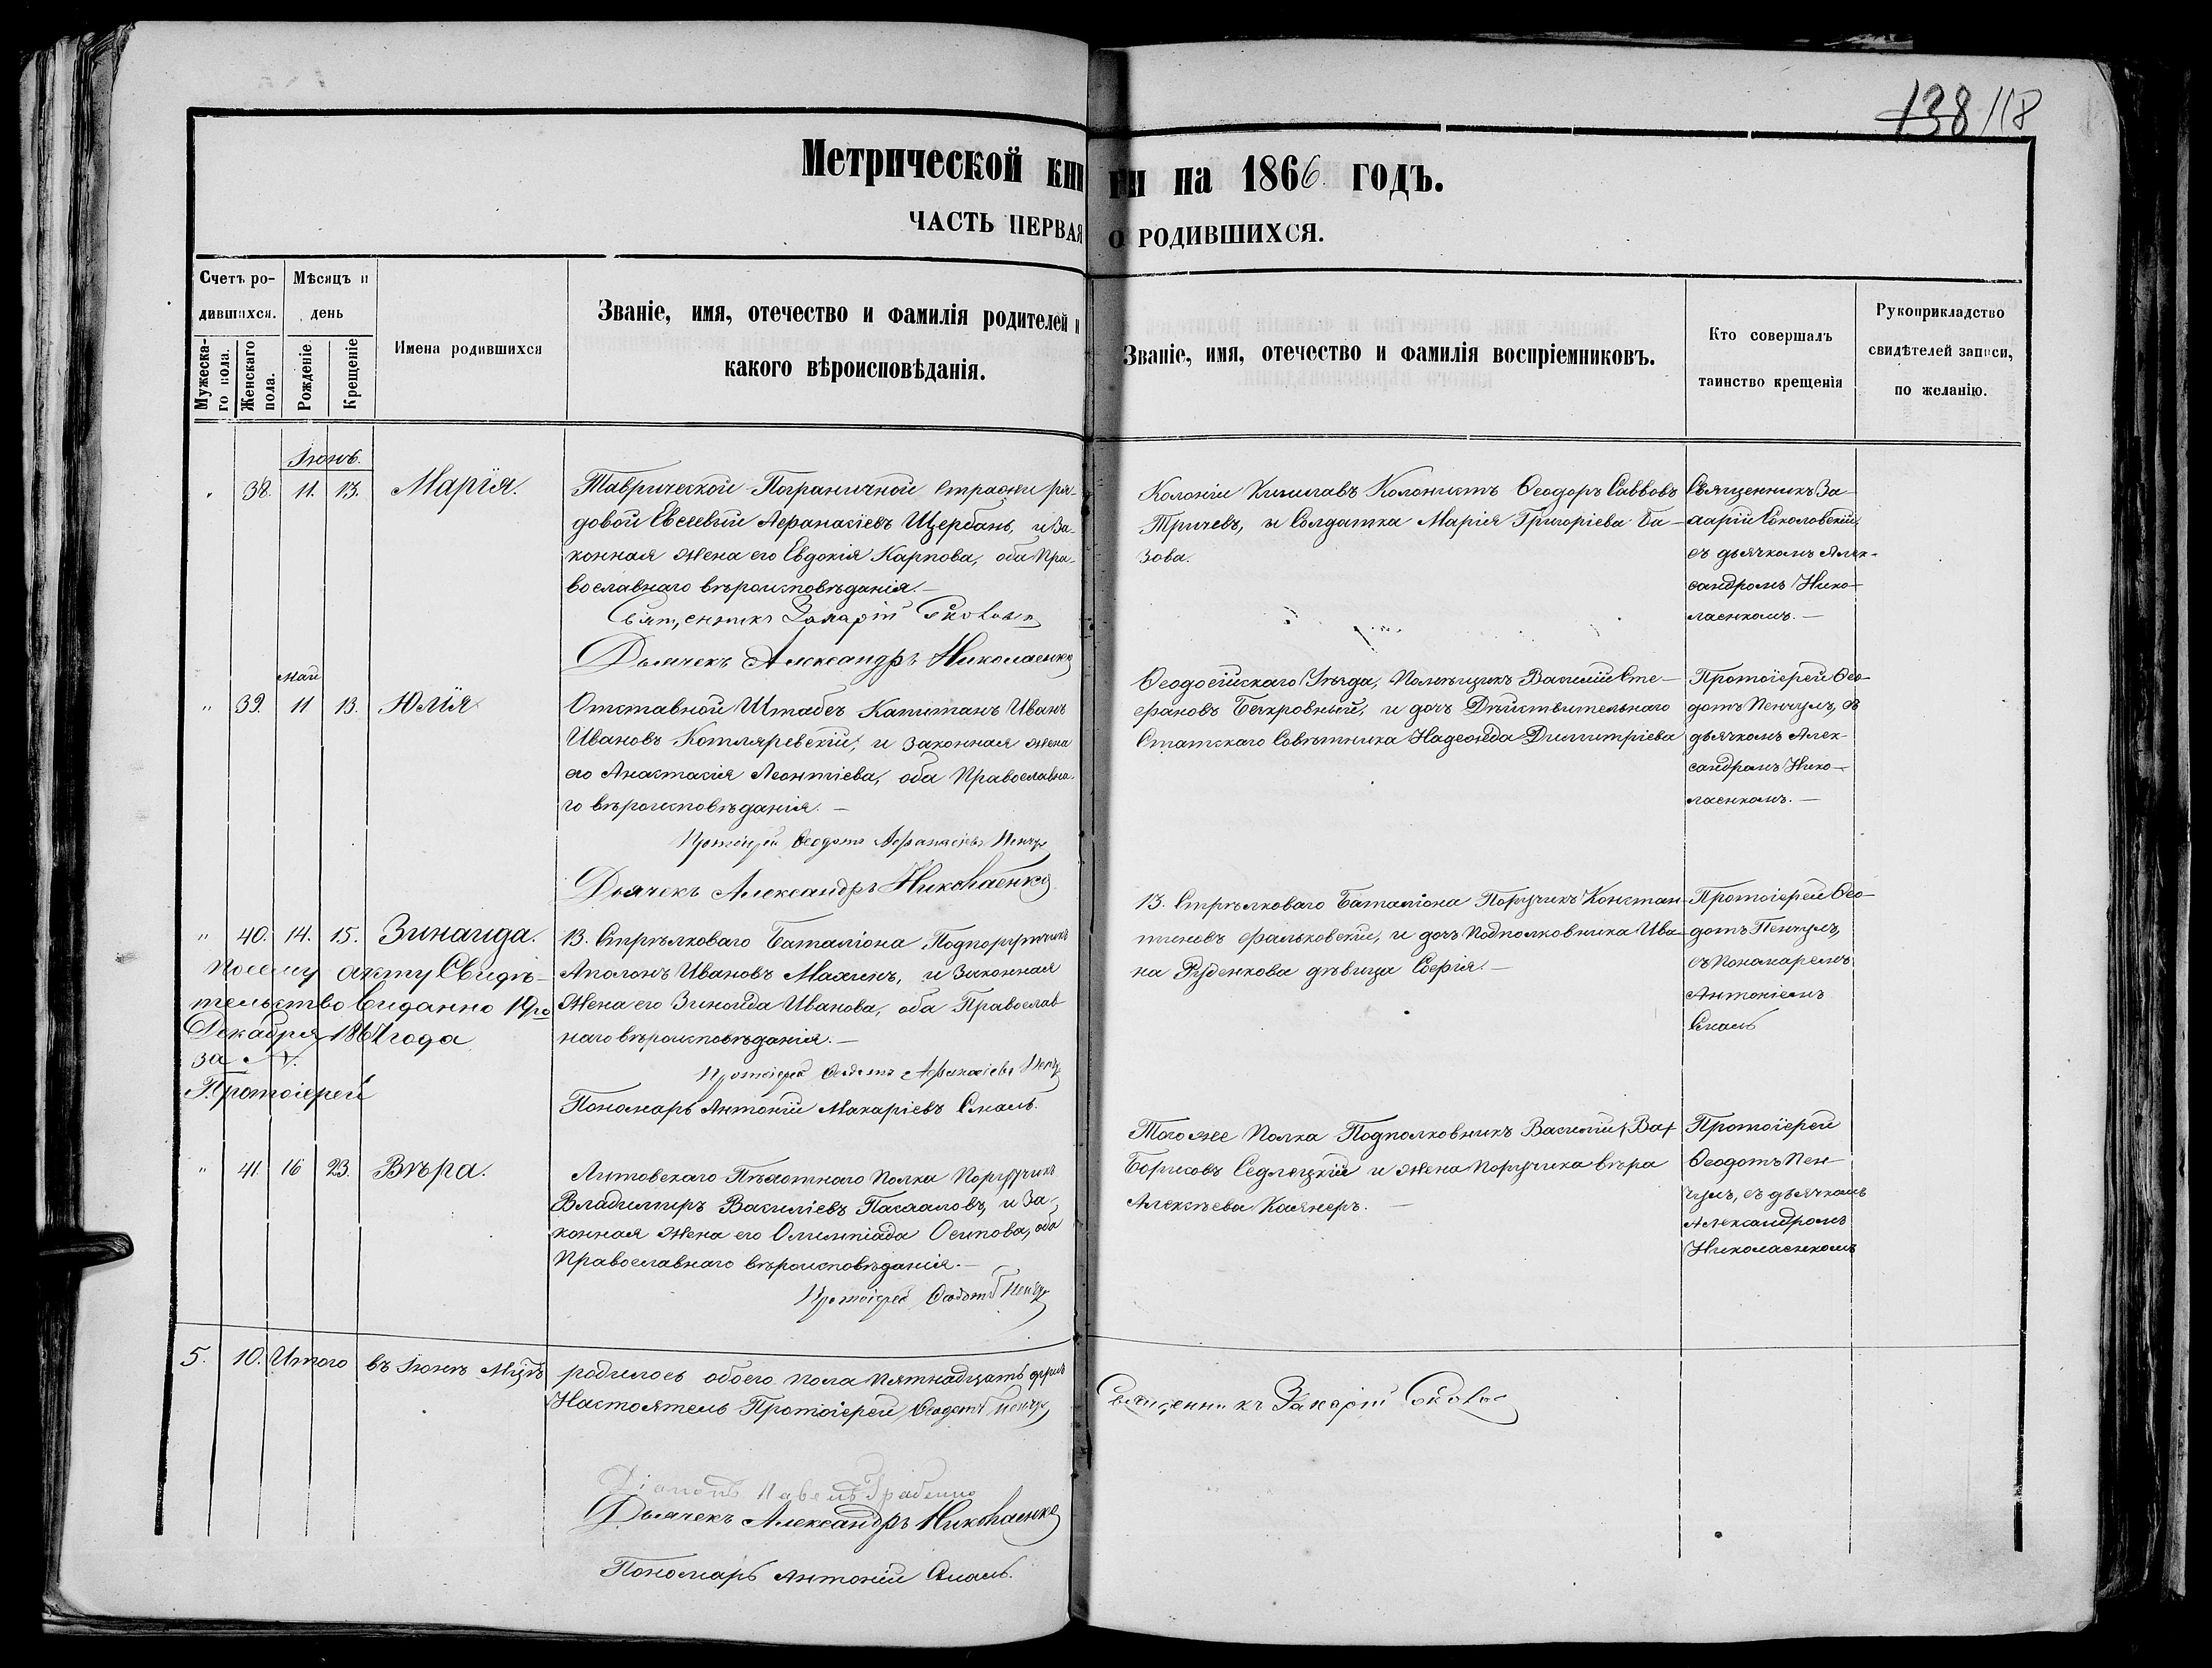 138 118
Метрической книги на 1866 годъ.
ЧАСТЬ ПЕРВАЯ О РОДИВШИХСЯ.
Счетъ ро-
дившихся.
Мужеска-
го пола.
Женскаго
пола.
Мѣсяцъ и
день
Рожденіе.
Крещеніе
Имена родившихся
Званіе, имя, отечество и фамилія родителей и
какого вѣроисповѣданія.
Званіе, имя, отечество и фамилія воспріемниковъ.
Кто совершалъ
таинство крещенія
Рукоприкладство
свидѣтелей записи,
по желанію.
Іюнь.
" 38. 11. 13. Марія.
Таврической Пограничной Стражи ря-
довой Евсевій Афанасіевъ Щербань, и за-
конная жена его Евдокія Карпова, оба Пра-
вославнаго вѣроисповѣданія. —
Священникъ Захарій
Дьячекъ Александръ Николаенко
Колоніи Кишлавъ Колонистъ Ѳеодоръ Саввовъ
Тричевъ, и Солдатка Марія Григоріева Ба-
зова.
Священникъ За-
харій Соколовскій,
съ дьячкомъ Алек-
сандромъ Нико-
лаенкомъ. —
май
" 39. 11 13. Юлія
Отставной Штабсъ Капитанъ Иванъ
Ивановъ Котляревскій, и законная жена
его Анастасія Леонтіева, оба Православна-
го вѣроисповѣданія. —
Протоіерей Ѳеодотъ Афанасіевъ
Дьячекъ Александръ Николаенко
Ѳеодосійскаго Уѣзда, Помѣщикъ Василій Сте-
фановъ Бекровный, и дочь Дѣйствительнаго
Статскаго Совѣтника Надежда Димитріева
Протоіерей Ѳео-
дотъ Пенчулъ, съ
дьячкомъ Алек-
сандромъ Нико-
лаенкомъ. —
" 40. 14. 15. Зинаида.
13. Стрѣлковаго Баталіона Подпоручикъ
Аполонъ Ивановъ Махинъ, и законная
жена его Зинаида Иванова, оба Православ-
наго вѣроисповѣданія. —
Протоіерей Ѳеодотъ Афанасіевъ
Пономарь Антоній Макаріевъ Смаль.
По сему акту Свидѣ-
тельство видано 19го
Декабря 1867 года
за №.
Протоіерей
13. Стрѣлковаго Баталіона Поручикъ Констан-
тиновъ Фальковскій, и дочь Подполковника Ива-
на Руденкова дѣвица Софія. —
Протоіерей Ѳео-
дотъ Пенчулъ,
съ Пономаремъ
Антоніемъ
Смаль
" 41 16 23. Вѣра.
Литовскаго Пѣхотнаго Полка Поручикъ
Владимиръ Василіевъ Пасхаловъ, и за-
конная жена его Олимпіада Осипова, оба
Православнаго вѣроисповѣданія. —
Протоіерей Ѳеодотъ
Того же Полка Подполковникъ Василій
Борисовъ Седлецкій и жена Поручика Вѣра
Алексѣева Каянеръ. —
Протоіерей
Ѳеодотъ Пен-
чулъ, съ дьячкомъ
Александромъ
Николаенкомъ
5. 10. Итого въ Іюнѣ Мцѣ родилось обоего пола пятнадцать душъ
Настоятель Протоіерей Ѳеодотъ
Священникъ Захарій
Діаконъ Павелъ
Дьячекъ Александръ Николаенко
Пономарь Антоній Смаль.